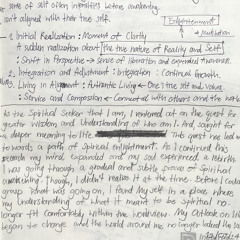 or sense of self often intensifies before awakening.
isn't aligned with their true self.
Enlightenment
Meditation
1. Initial Realization: Moment of Clarity
A sudden realization about the true nature of Reality and Self
Shift in Perspective → sense of liberation and expanded awareness.
2. Integration and Adjustment: Integration: Continued Growth.
3. Living in Alignment: Authentic Living → One's true self and values.
Service and Compassion → Connected with others and the world
As the Spiritual Seeker that I am, I entered on the quest for
greater wisdom and understanding of who I am. And sought for
a deeper meaning to life. This quest has led me
towards a path of Spiritual enlightenment. As I continued this
search my mind expanded and my soul experienced a rebirth
I was going through a gradual and subtle phase of Spiritual
awakening. Though, I didn't realize it at the time. Before I could
grasp what was going on, I found myself in a place where
my understanding of what it meant to be spiritual no
longer fit comfortably within the worldview. My Outlook on life
began to change and the world around me no longer looked the same